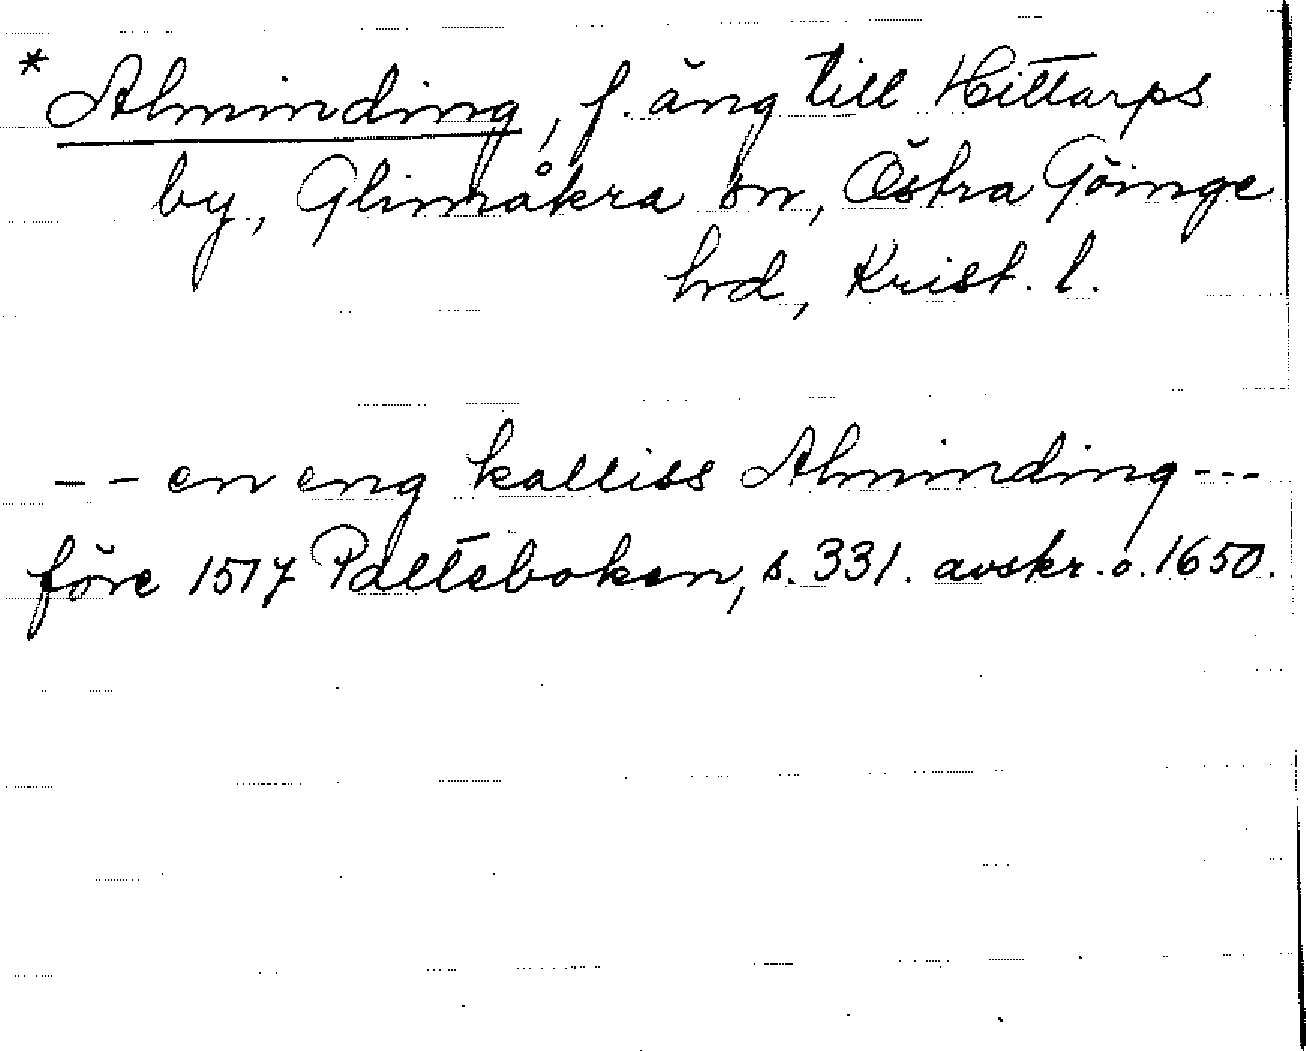 * Alminding, f. äng till Hittarps
by, Glimåkra sn, Östra Göinge
hrd, Krist. l.
-- en eng kalliss Alminding ---
före 1517 Palteboken, s. 331. avskr. o. 1650.